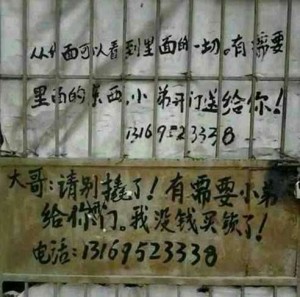 从外面可以看到里面的一切。有需要
里面的东西,小弟开门送给你!
13169523338
大哥:请别撬了!有需要小弟
给你开门。我没钱买锁了!
电话:13169523338